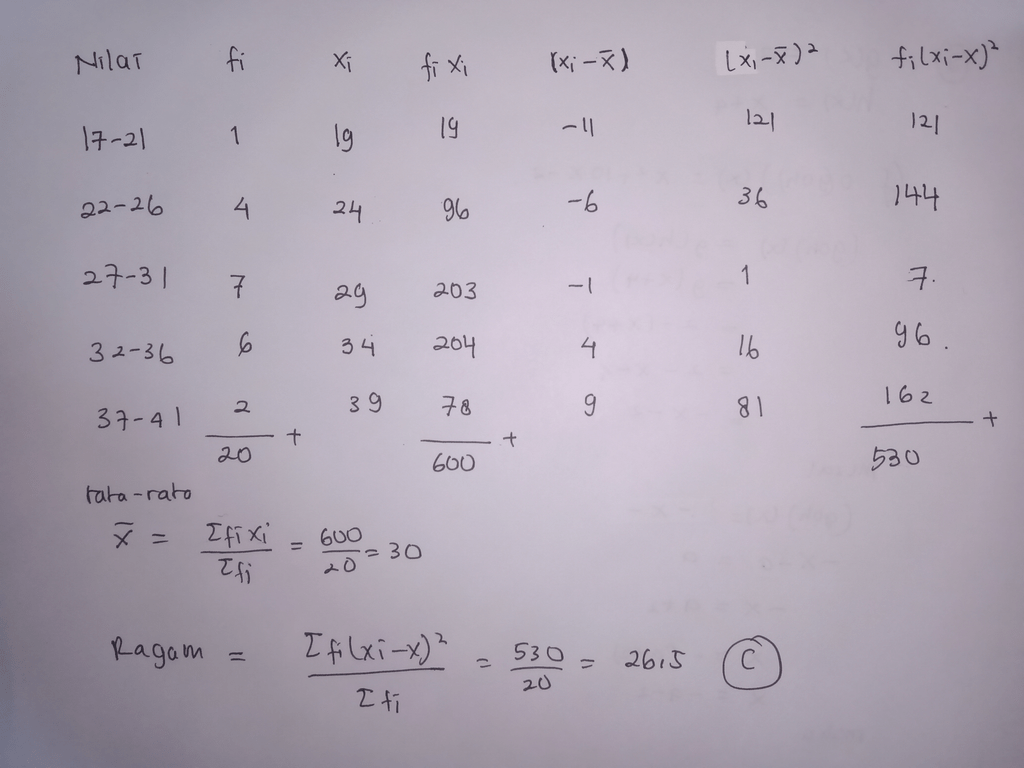 Nilai fi xi fi xi (xi-x̄) (xi-x̄)² fi(xi-x)²
17-21 1 19 19 -11 121 121
22-26 4 24 96 -6 36 144
27-31 7 29 203 -1 1 7.
32-36 6 34 204 4 16 96.
37-41 2 39 78 9 81 162 +
20 + 600 + 530
rata-rata
x̄ = Σfi xi / Σfi = 600/20 = 30
Ragam = Σfi(xi-x)² / Σfi = 530/20 = 26,5 C